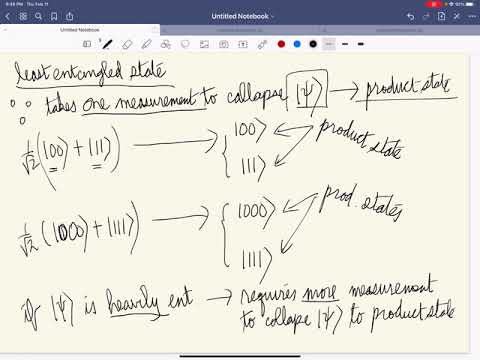 9:48 PM Thu Feb 11
92%
Untitled Notebook
Untitled Notebook
least entangled state
∵ takes one measurement to collapse |ψ⟩ → product state
1/√2 (|00⟩ + |11⟩) → { |00⟩ |11⟩ product state
1/√2 (|000⟩ + |111⟩) → { |000⟩ |111⟩ prod. states
if |ψ⟩ is heavily ent → requires more measurement
to collape |ψ⟩ to product state